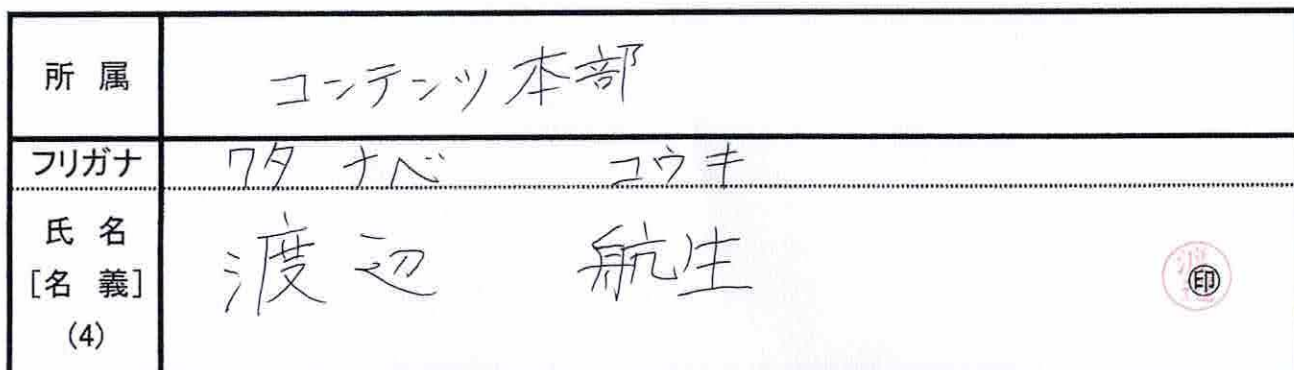 所 属 コンテンツ本部
フリガナ ワタナベ コウキ
氏 名 渡辺 航生
[名 義]
(4)
印